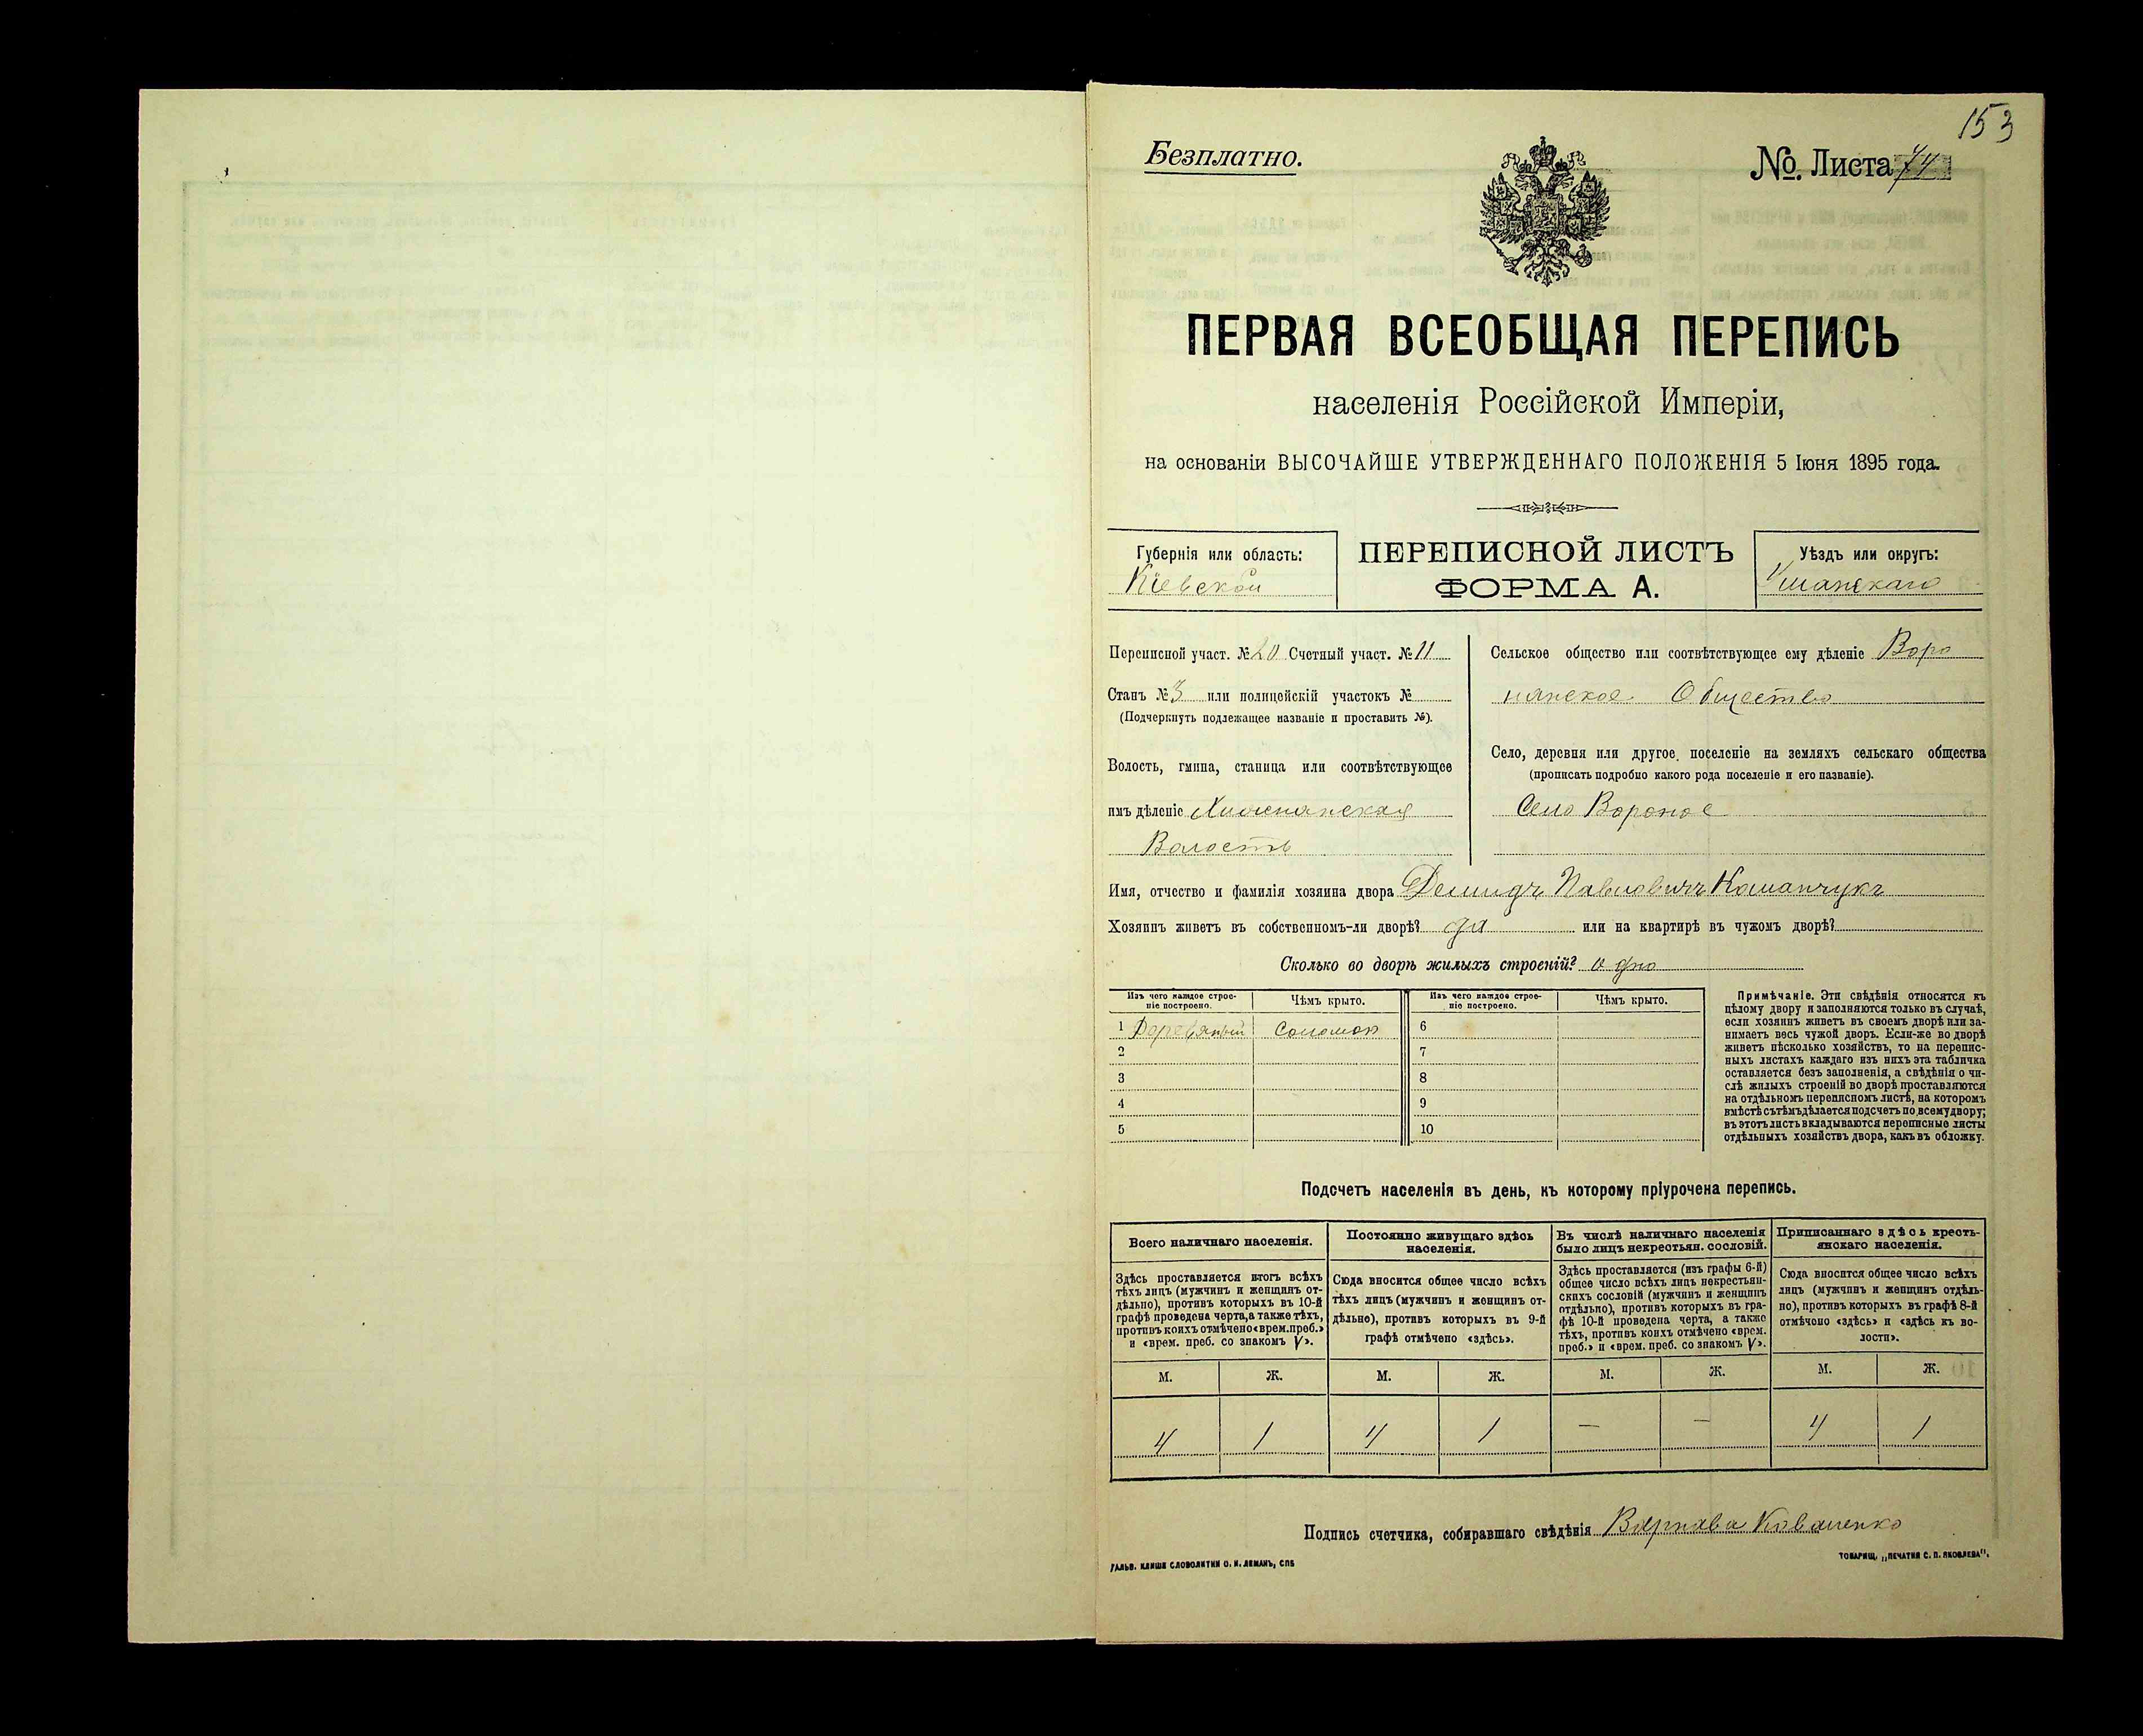 153
Безплатно.
№. Листа 74
ПЕРВАЯ ВСЕОБЩАЯ ПЕРЕПИСЬ
населенія Россійской Имперіи,
на основаніи ВЫСОЧАЙШЕ УТВЕРЖДЕННАГО ПОЛОЖЕНІЯ 5 Іюня 1895 года.
Губернія или область:
Кіевской
ПЕРЕПИСНОЙ ЛИСТЪ
ФОРМА А.
Уѣздъ или округъ:
Уманскаго
Переписной участ. № 20 Счетный участ. № 11
Станъ № 3 или полицейскій участокъ №
(Подчеркнуть подлежащее названіе и проставить №).
Волость, гмина, станица или соотвѣтствующее
имъ дѣленіе
Волость
Сельское общество или соотвѣтствующее ему дѣленіе Воро
нянское Общество
Село, деревня или другое поселеніе на земляхъ сельскаго общества
(прописать подробно какого рода поселеніе и его названіе).
Село Вороное
Имя, отчество и фамилія хозяина двора Демидъ Павловичъ
Хозяинъ живетъ въ собственномъ-ли дворѣ? да или на квартирѣ въ чужомъ дворѣ?
Сколько во дворѣ жилыхъ строеній? одно
Изъ чего каждое строе-
ніе построено.
Чѣмъ крыто.
Изъ чего каждое строе-
ніе построено.
Чѣмъ крыто.
1 Деревяный Соломой 6
2 7
3 8
4 9
5 10
Примѣчаніе. Эти свѣдѣнія относятся къ
цѣлому двору и заполняются только въ случаѣ,
если хозяинъ живетъ въ своемъ дворѣ или за-
нимаетъ весь чужой дворъ. Если-же во дворѣ
живетъ нѣсколько хозяйствъ, то на перепис-
ныхъ листахъ каждаго изъ нихъ эта табличка
оставляется безъ заполненія, а свѣдѣнія о чи-
слѣ жилыхъ строеній во дворѣ проставляются
на отдѣльномъ переписномъ листѣ, на которомъ
вмѣстѣ съ тѣмъ дѣлается подсчетъ по всему двору;
въ этотъ листъ вкладываются переписные листы
отдѣльныхъ хозяйствъ двора, какъ въ обложку.
Подсчетъ населенія въ день, къ которому пріурочена перепись.
Всего наличнаго населенія.
Здѣсь проставляется итогъ всѣхъ
тѣхъ лицъ (мужчинъ и женщинъ от-
дѣльно), противъ которыхъ въ 10-й
графѣ проведена черта, а также тѣхъ,
противъ коихъ отмѣчено «врем. преб.»
и «врем. преб. со знакомъ V».
Постоянно живущаго здѣсь
населенія.
Сюда вносится общее число всѣхъ
тѣхъ лицъ (мужчинъ и женщинъ от-
дѣльно), противъ которыхъ въ 9-й
графѣ отмѣчено «здѣсь».
Въ числѣ наличнаго населенія
было лицъ некрестьян. сословій.
Здѣсь проставляется (изъ графы 6-й)
общее число всѣхъ лицъ некрестьян-
скихъ сословій (мужчинъ и женщинъ
отдѣльно), противъ которыхъ въ гра-
фѣ 10-й проведена черта, а также
тѣхъ, противъ коихъ отмѣчено «врем.
преб.» и «врем. преб. со знакомъ V».
Приписаннаго здѣсь кресть-
янскаго населенія.
Сюда вносится общее число всѣхъ
лицъ (мужчинъ и женщинъ отдѣль-
но), противъ которыхъ въ графѣ 8-й
отмѣчено «здѣсь» и «здѣсь къ во-
лости».
М. Ж. М. Ж. М. Ж. М. Ж.
4 1 4 1 — — 4 1
Подпись счетчика, собиравшаго свѣдѣнія Варнава Коваленко
ГАЛЬВ. КЛИШЕ СЛОВОЛИТНИ О. И. ЛЕМАНЪ, СПБ
ТОВАРИЩ. „ПЕЧАТНЯ С. П. ЯКОВЛЕВА".